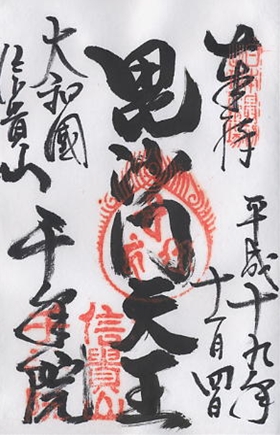 奉拝
平成十九年
十一月四日
毘沙門天王
大和國
信貴山
千手院
信貴山